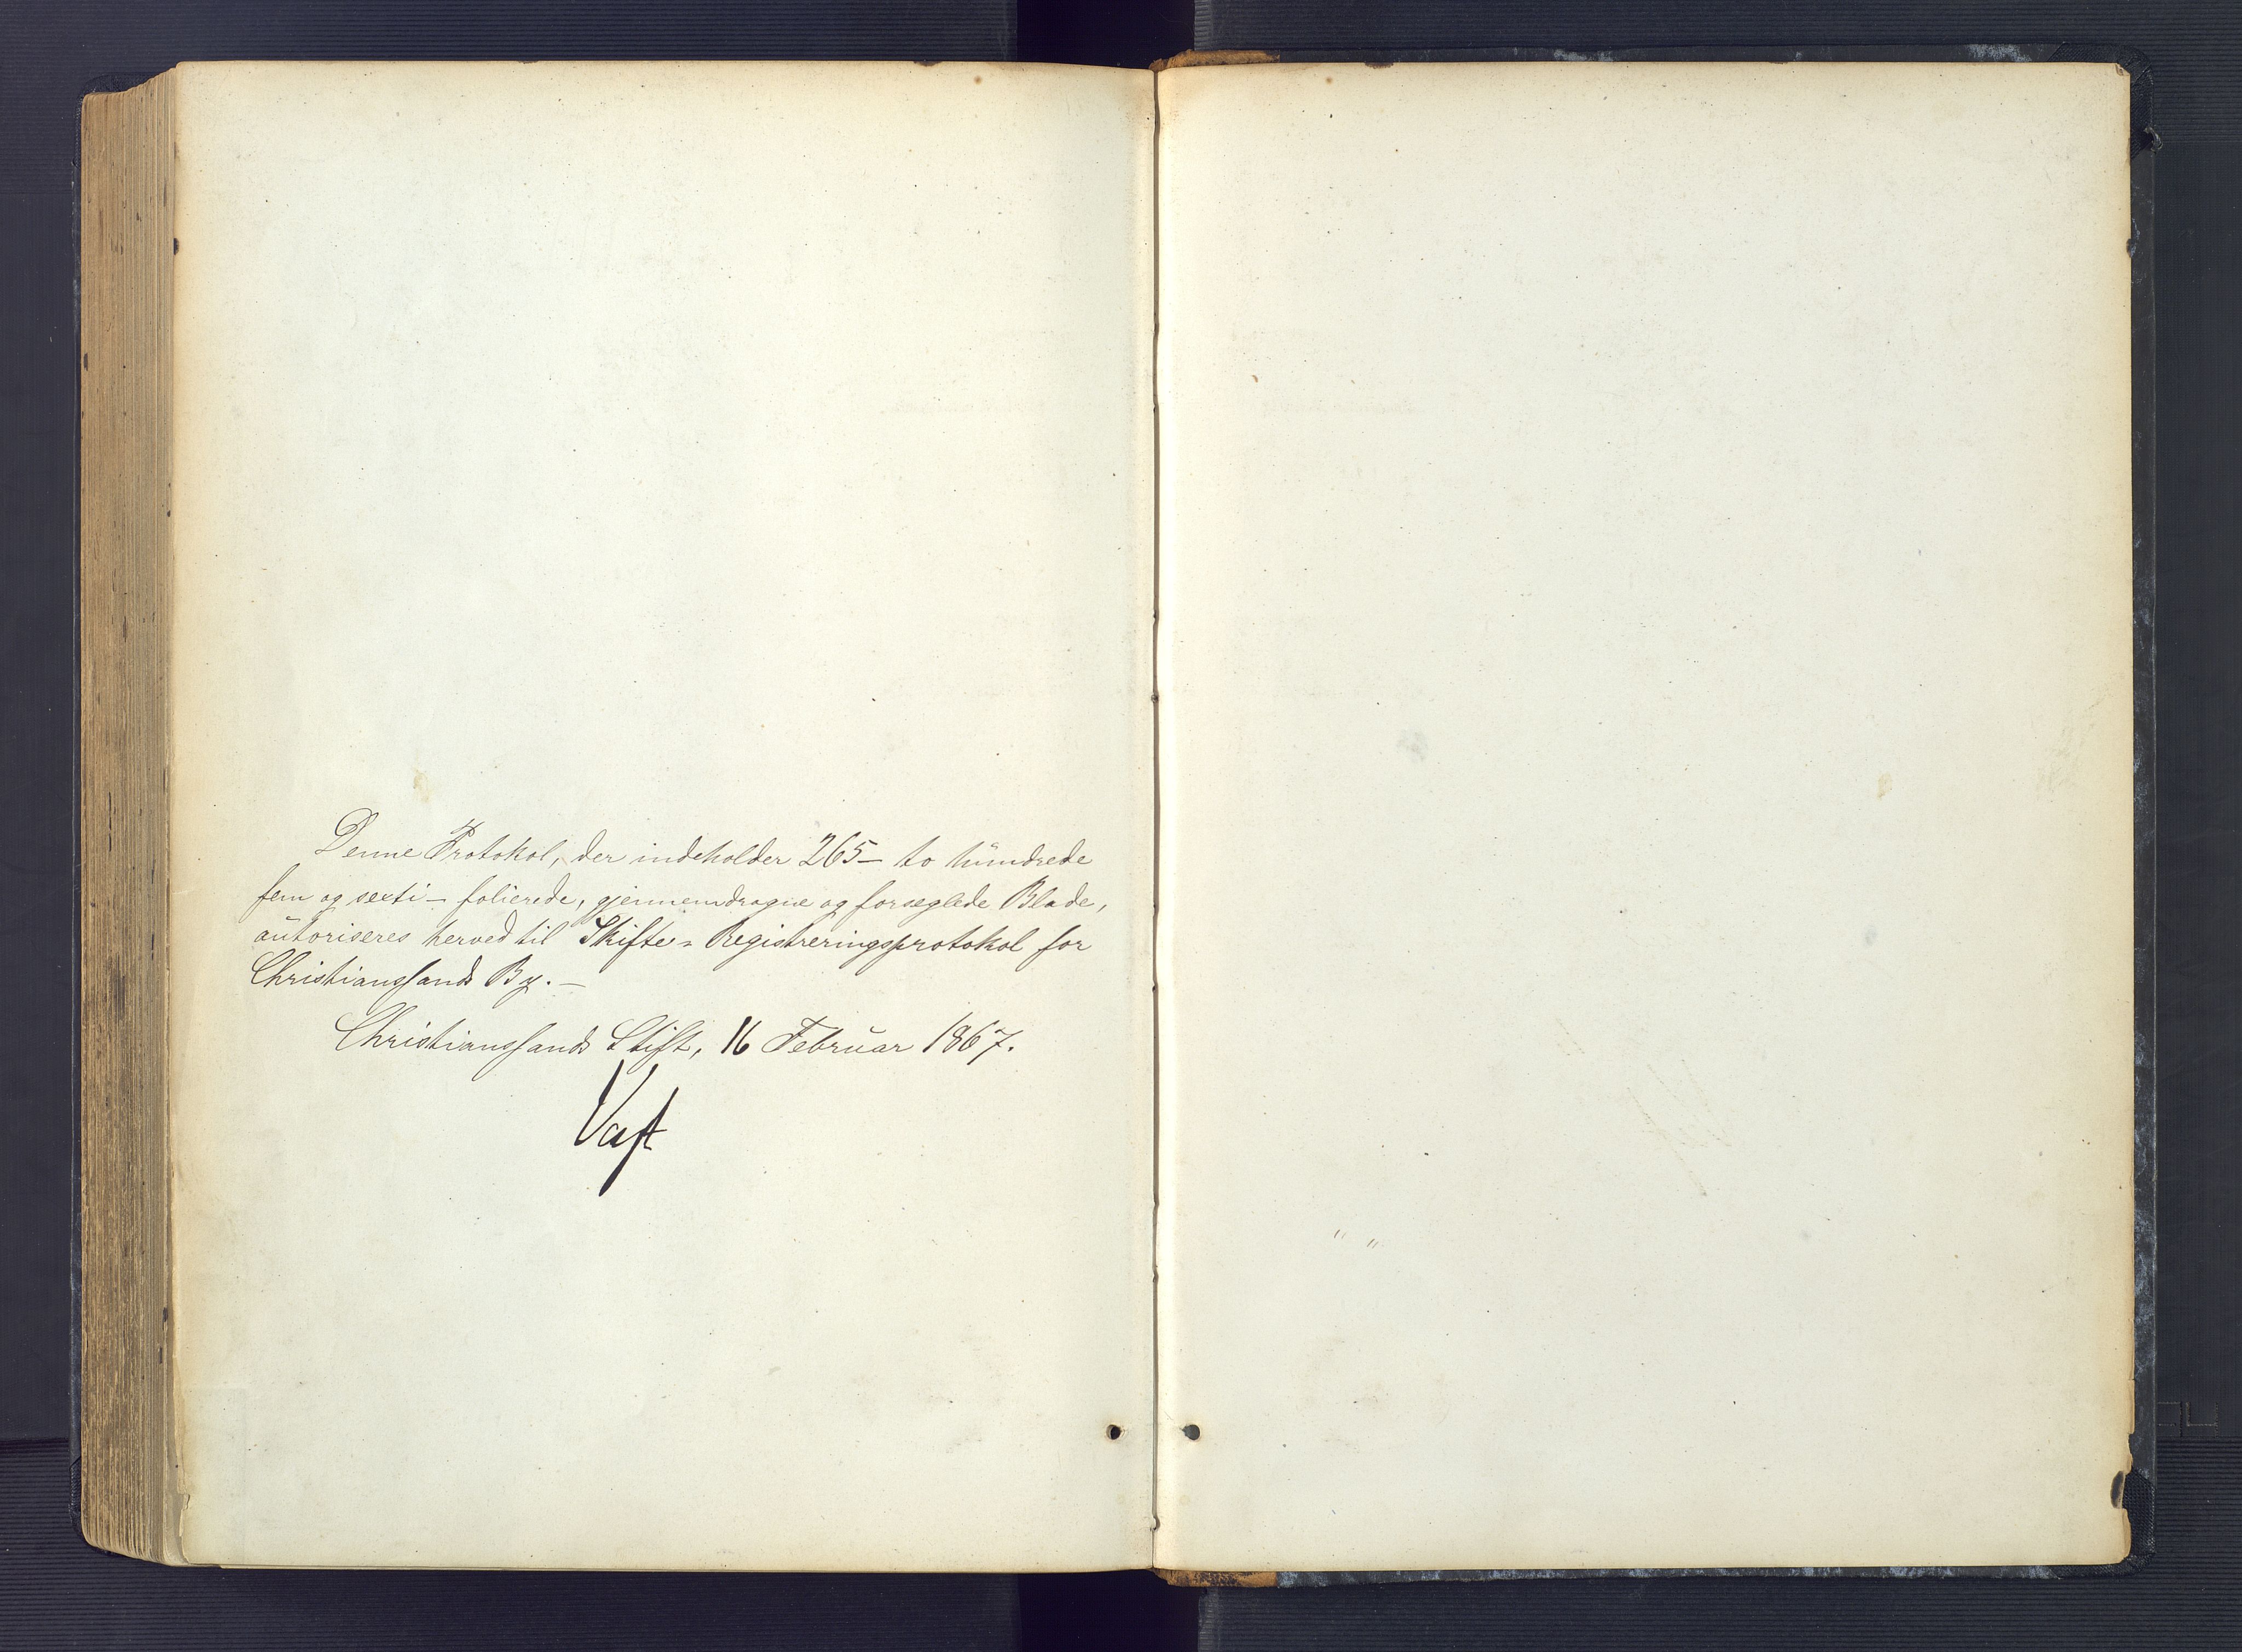 Denne Protokol, der indeholder 265 – to hundrede
fem og sexti – folierede, gjennemdragne og forseglede Blade,
autoriseres herved til Skifte-Registreringsprotokol for
Christianssands By. –
Christianssands Stift, 16 Februar 1867.
Vogt